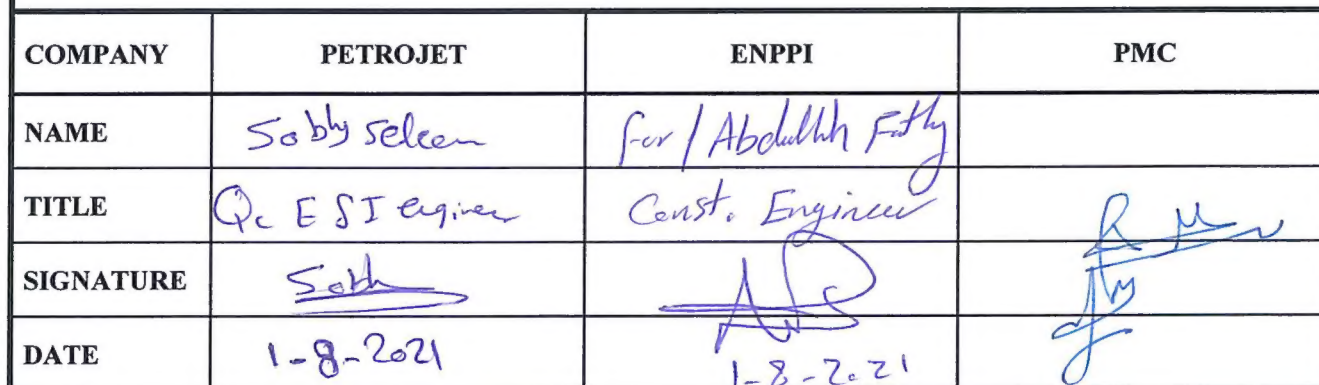 COMPANY PETROJET ENPPI PMC
NAME Sobhy Seleem For / Abdullah Fathy
TITLE Qc E&I engineer Const. Engineer
SIGNATURE Sobh
DATE 1-8-2021 1-8-2021